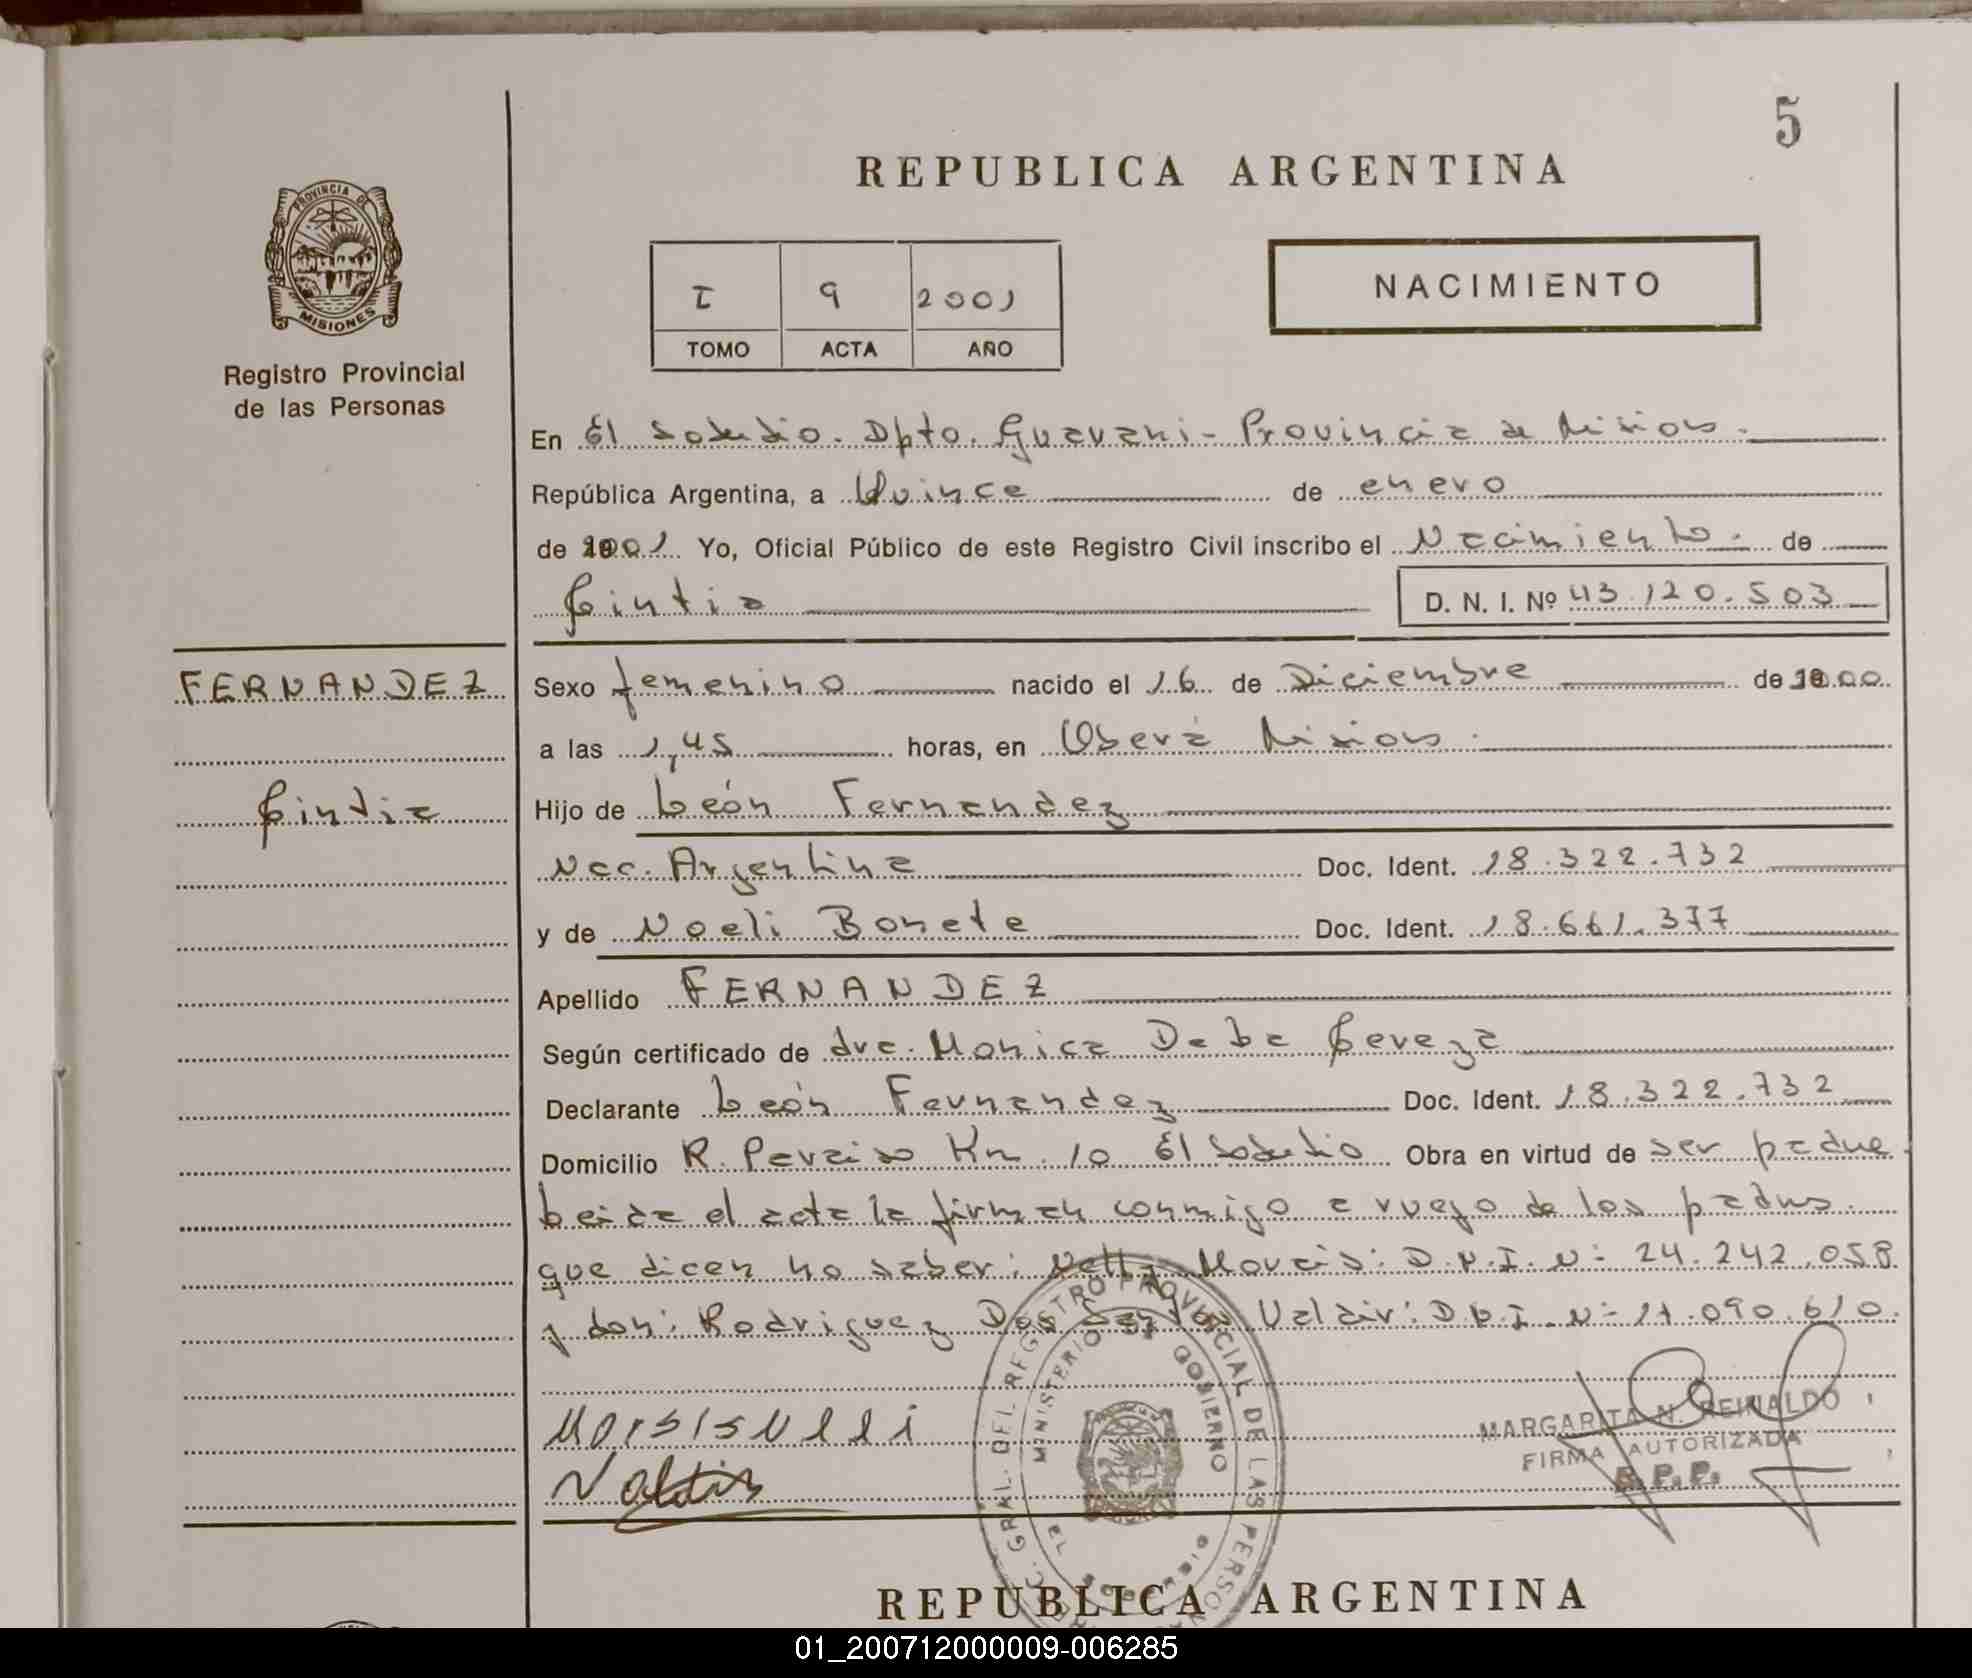 5
REPUBLICA ARGENTINA
PROVINCIA DE
MISIONES
Registro Provincial
de las Personas
I 9 2001
TOMO ACTA AÑO
NACIMIENTO
En El Soberbio. Dpto. Guaraní - Provincia de Misiones.
República Argentina, a Quince de enero
de 2001 Yo, Oficial Público de este Registro Civil inscribo el Nacimiento. de
Cintia D. N. I. Nº 43.120.503
FERNANDEZ
Cintia
Sexo femenino nacido el 16 de Diciembre de 2000
a las 1,45 horas, en Oberá Misiones.
Hijo de León Fernandez
Nac. Argentina Doc. Ident. 18.322.732
y de Noeli Bonete Doc. Ident. 18.661.377
Apellido FERNANDEZ
Según certificado de dra. Monica
Declarante León Fernandez Doc. Ident. 18.322.732
Domicilio R. Paraiso Km 10 El Soberbio Obra en virtud de ser padre
leida el acta la firman conmigo a ruego de los padres.
que dicen no saber: Nelly Morais: D.N.I. Nº 24.242.058
y don: Rodriguez Dos Santos Valdir: D.N.I. Nº 11.090.610.
Morais Nelli
Valdir
GRAL. DEL REGISTRO PROVINCIAL DE LAS PERSONAS
MINISTERIO DE GOBIERNO
MARGARITA N. REINALDO
FIRMA AUTORIZADA
R.P.P.
REPUBLICA ARGENTINA
01_200712000009-006285